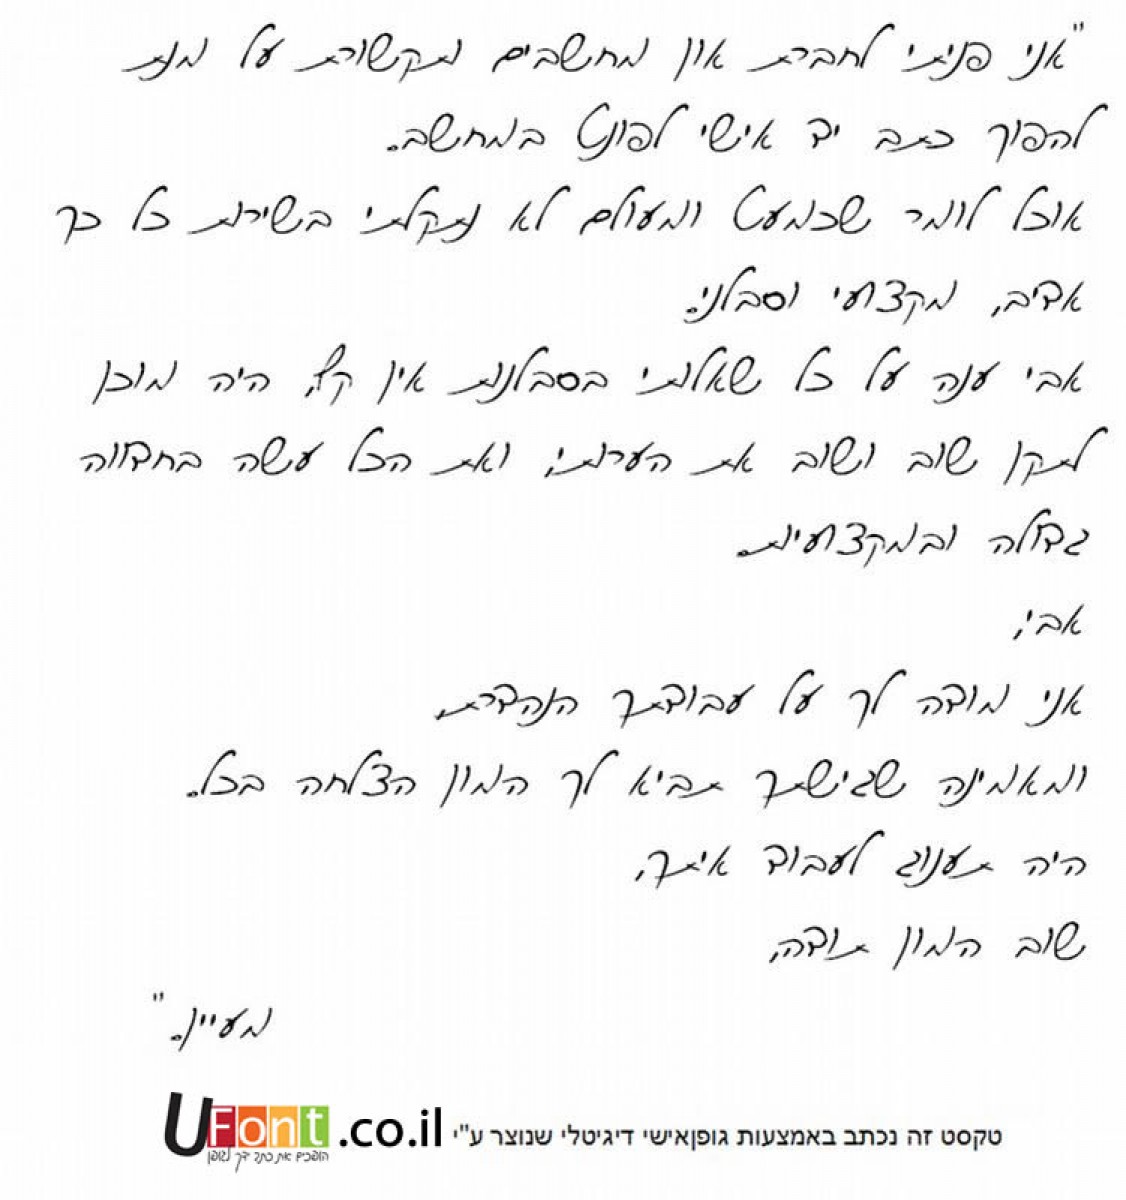 "אני פניתי לחברת און מחשבים ותקשורת על מנת
להפוך כתב יד אישי לפונט במחשב.
אוכל לומר שכמעט ומעולם לא נתקלתי בשירות כל כך
אדיב, מקצועי וסבלני.
אבי ענה על כל שאלותי בסבלנות אין קץ, היה מוכן
לתקן שוב ושוב את הערותי, ואת הכל עשה בחדווה
גדולה ובמקצועיות.
אבי,
אני מודה לך על עבודתך הנהדרת,
ומאמינה שגישתך תביא לך המון הצלחה בכל.
היה תענוג לעבוד איתך,
שוב המון תודה,
מעיין."
טקסט זה נכתב באמצעות גופןאישי דיגיטלי שנוצר ע"י UFont.co.il
הופכים את כתב ידך לגופן